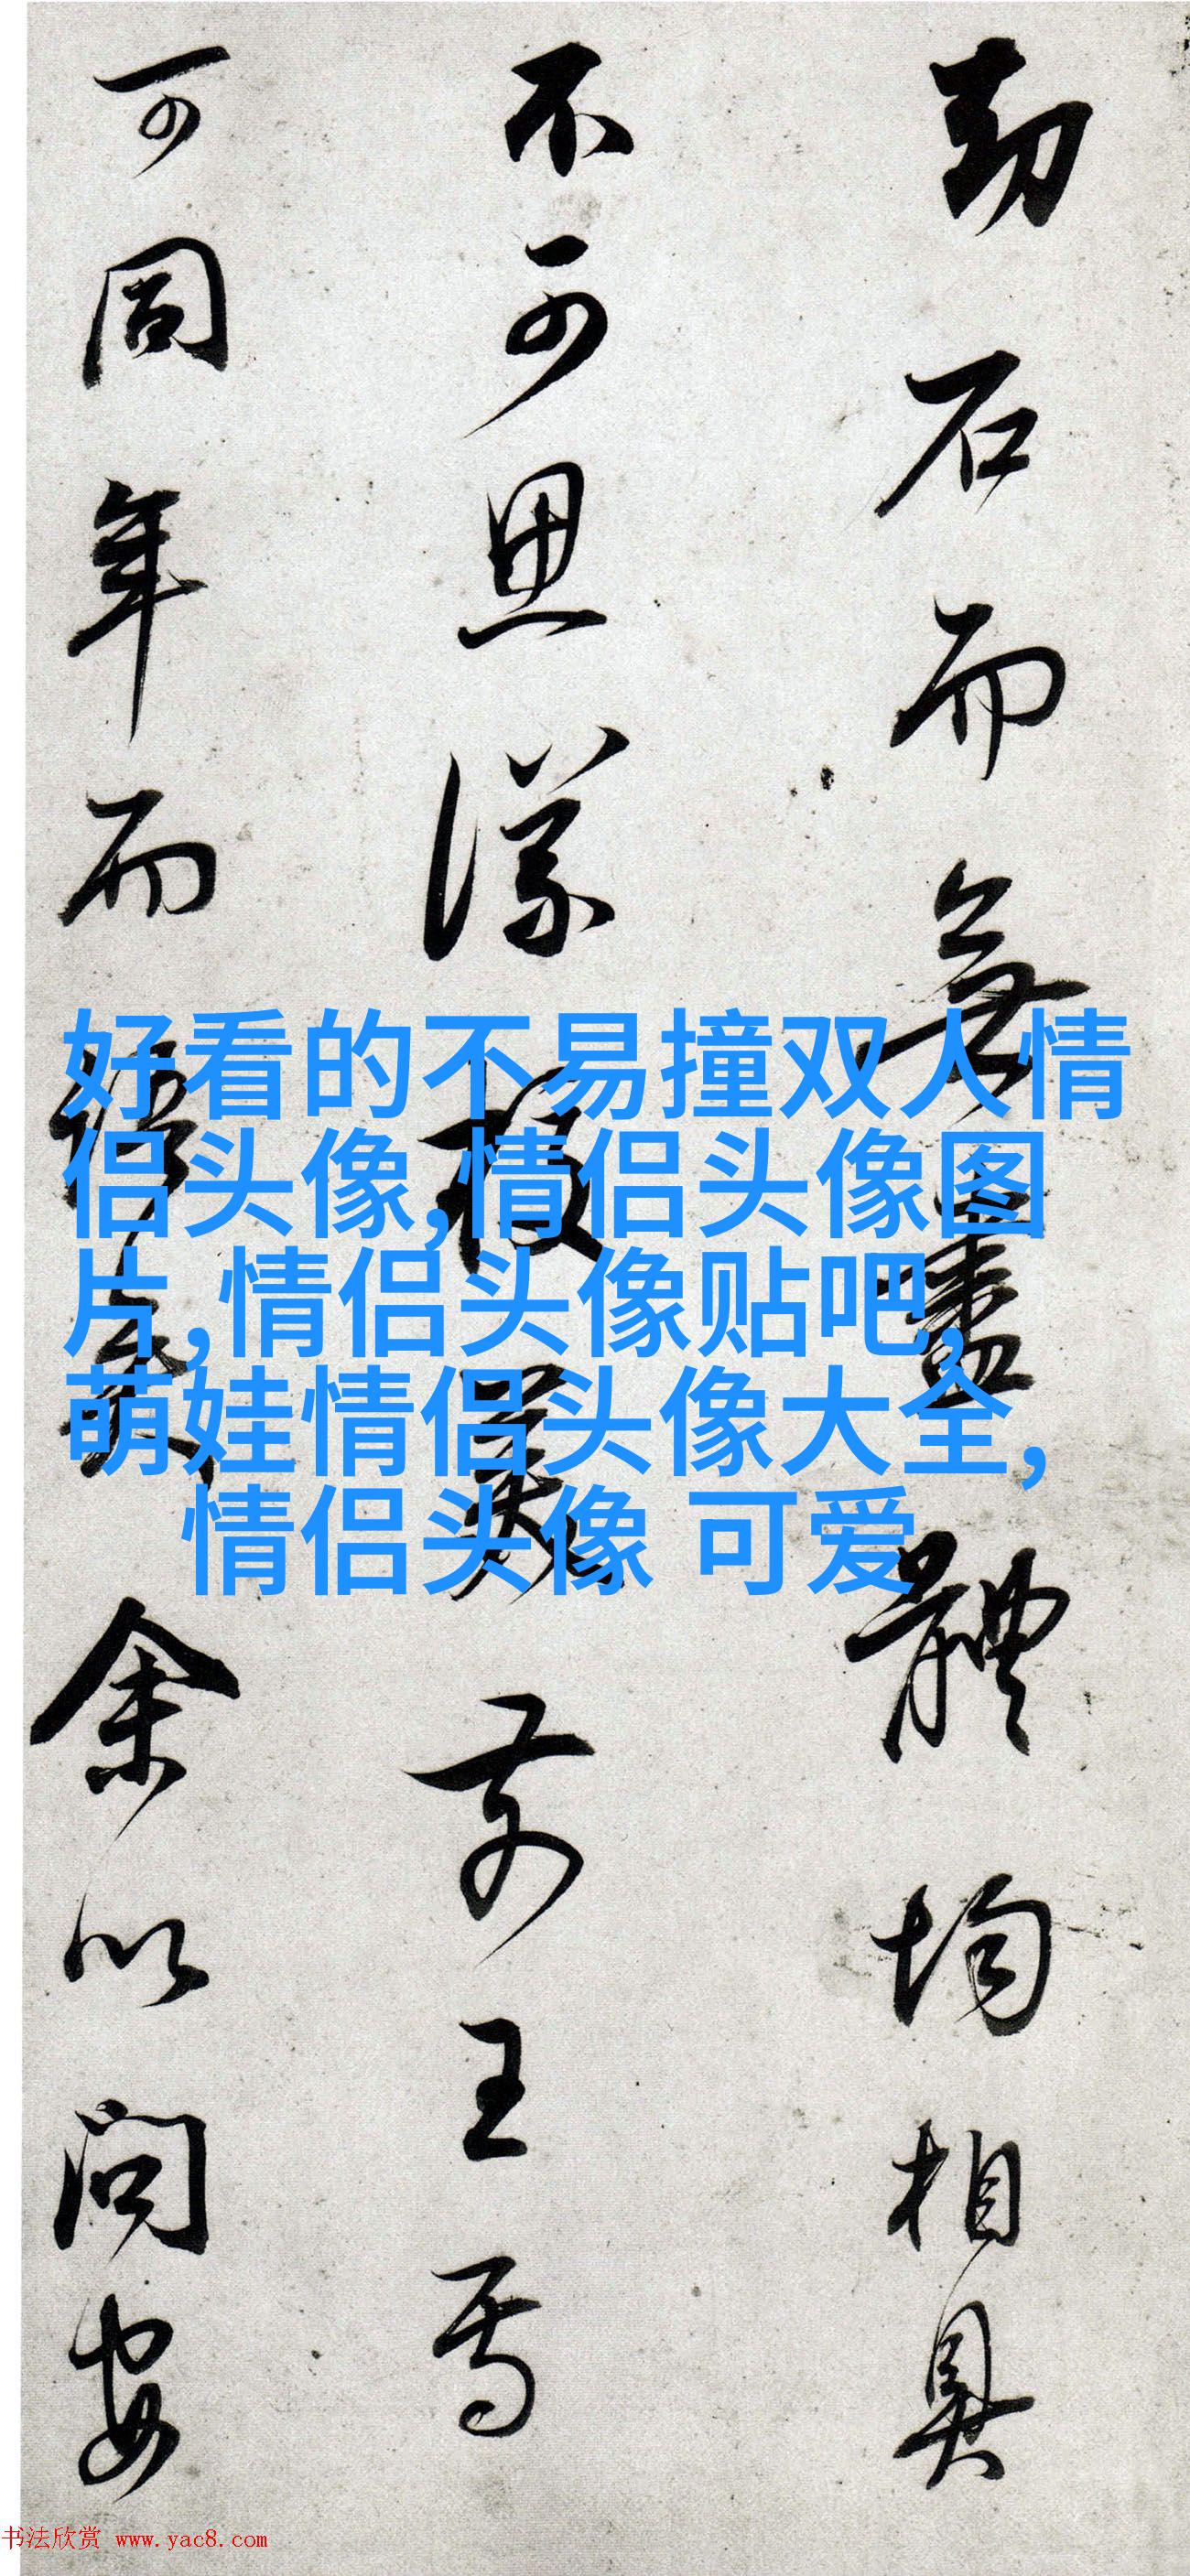 勒石而無盡體均相具
不可思議按萬前王焉
可同年而語矣余以問安
好看的不易撞双人情
侣头像,情侣头像图
片,情侣头像贴吧,
萌娃情侣头像大全,
情侣头像 可爱
书法欣赏 www.yac8.com